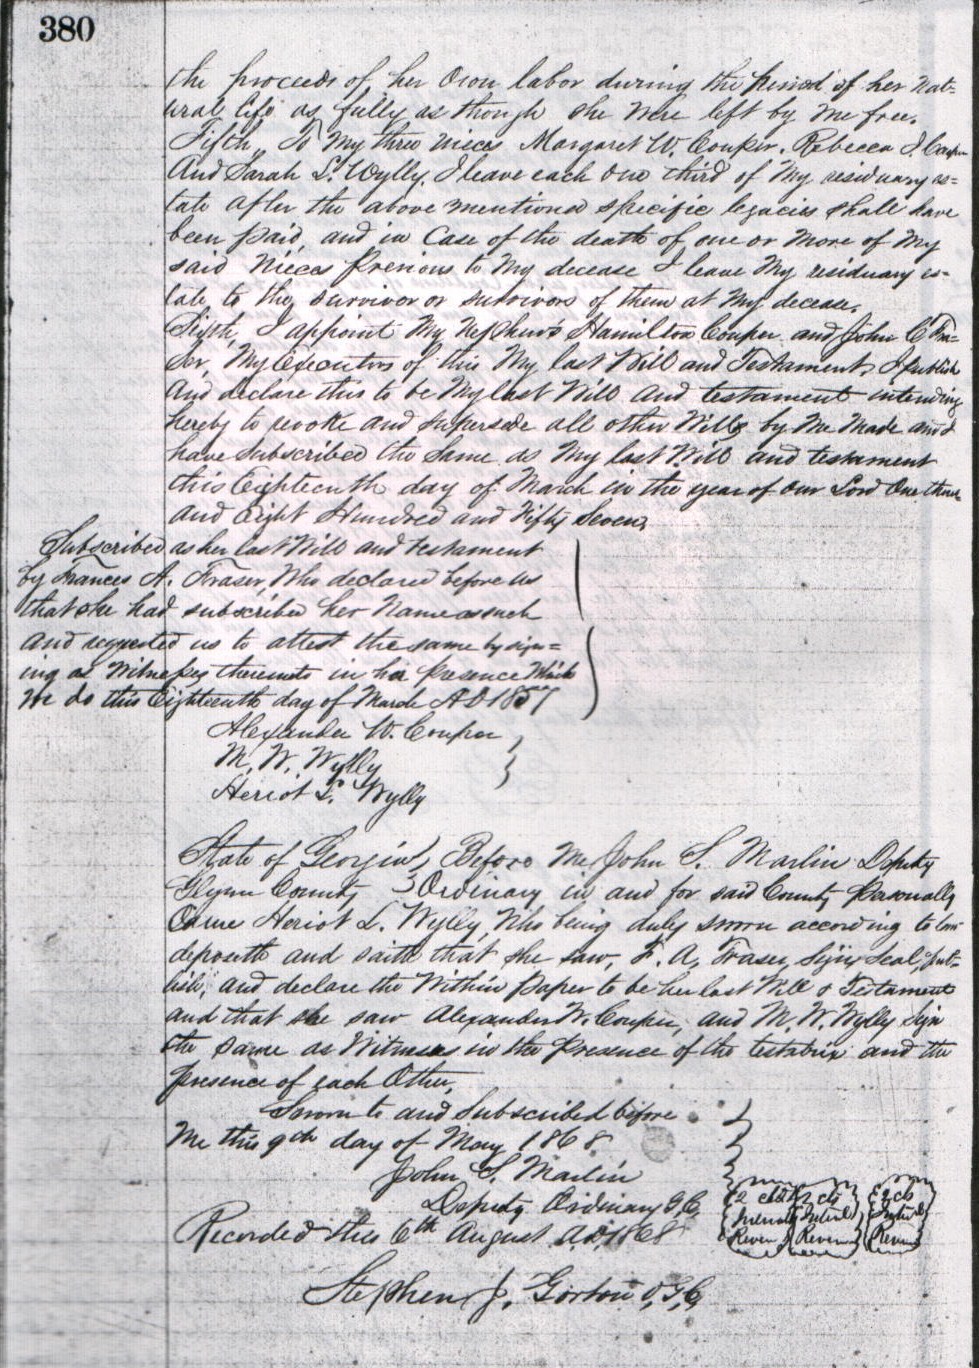 380
the proceeds of her own labor during the period of her nat-
ural life as fully as though she were left by me free.
Fifth, To my three nieces Margaret W. Couper. Rebecca I. Couper
And Sarah L. Wylly. I leave each one third of my residuary es-
tate after the above mentioned specific legacies shall have
been paid, and in case of the death of one or more of my
said nieces previous to my decease I leave my residuary es-
tate to the survivor or survivors of them at my decease.
Sixth, I appoint my nephews Hamilton Couper and John C Fra-
ser, my executors of this my last Will and Testament. I publish
And declare this to be my last Will and testament intending
hereby to revoke and supersede all other Wills by me made and I
have subscribed the same as my last Will and testament
this Eighteenth day of March in the year of our Lord One thou
And Eight Hundred and Fifty Seven,
Subscribed as her last Will and testament
by Frances A. Fraser, who declared before us
that she had subscribed her name as such
and requested us to attest the same by sign=
ing as Witnesses thereunto in her presence which
we do this Eighteenth day of March AD 1857
Alexander W. Couper
M. W. Wylly
Heriot L. Wylly
State of Georgia Before me John S. Marlin Deputy
Glynn County Ordinary in and for said County personally
Came Heriot L. Wylly, who being duly sworn according to law
deposeth and saith that she saw, F. A. Fraser, sign, seal, pub-
lish, and declare the within paper to be her last Will & Testament
and that she saw Alexander W. Couper, and M. W. Wylly sign
the same as Witnesses in the presence of the testatrix and the
presence of each other,
Sworn to and subscribed before
me this 9th day of May 1868
John S. Marlin
Deputy Ordinary G,C,
2 cts 2 cts 2 cts
Internal Internal Internal
Reven Revenu Revenu
Recorded this 6th August A.D, 1868
Stephen J. Gorton O,G,C,